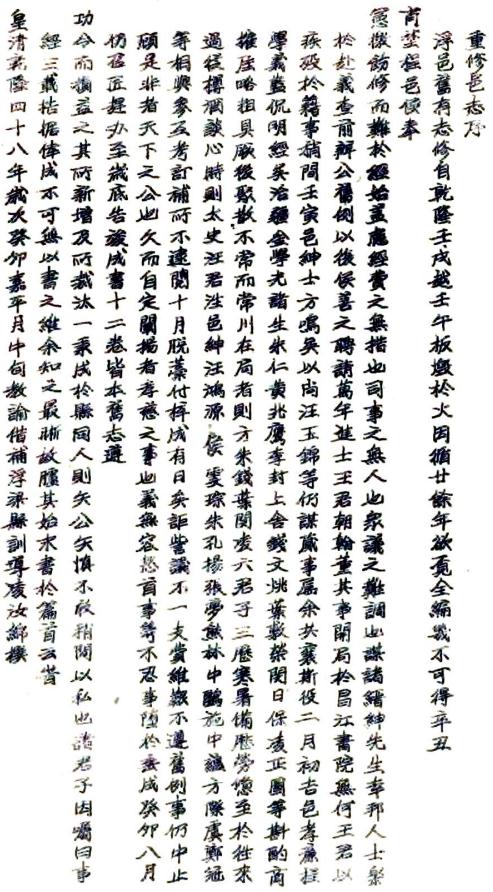 重修邑志序
浮邑舊有志修自乾隆壬戌越壬午板燬於火因循廿餘年欲覓全編幾不可得辛丑
商塋楹邑侯奉
憲檄飭修而難於經始蓋慮經費之無措也司事之無人也衆議之難調也謀諸縉紳先生幸邦人士樂
於赴義查前辦公舊例以後侯善之聘請萬年進士王君朝翰董其事開局於昌江書院無何王君以
疾歿於籍事稍間壬寅邑紳士方鳴矣以尚汪玉錦等仍謀厥事屬余共襄斯役二月初吉邑孝廉程
學義藍侃明經吳治疆金學尤諸生朱仁黃兆鷹李封上舍錢文姚葉數榮閔日保凌正圖等斟酌商
搉庶略粗具厥後聚散不常而常川在局者則方朱錢葉閔凌六君子三歷寒暑備歷勞瘁至於往來
過從揮洒談心時則太史汪君泩邑紳汪鴻源侯雯琮朱孔揚張夢熊林中鷗施中議方際虞鄭冠
等相與參互考訂補所不逮閱十月脫藁付梓成有日矣詎訾議不一支費維艱不遵舊例事仍中止
顧是非者天下之公也久而自定闡揚者孝慈之事也義無容愆首事等不忍事隳於垂成癸卯八月
仍召匠趕办至歲底告竣成書十二卷皆本舊志遵
功令而損益之其所新增及所裁汰一秉成於縣同人則矢公矢慎不敢稍間以私也諸君子因囑曰事
經三載拮据倖成不可無以書之維余知之最晰故臚其始末書於篇首云旹
皇清乾隆四十八年歲次癸卯嘉平月中旬教諭借補浮梁縣訓導凌汝綿撰